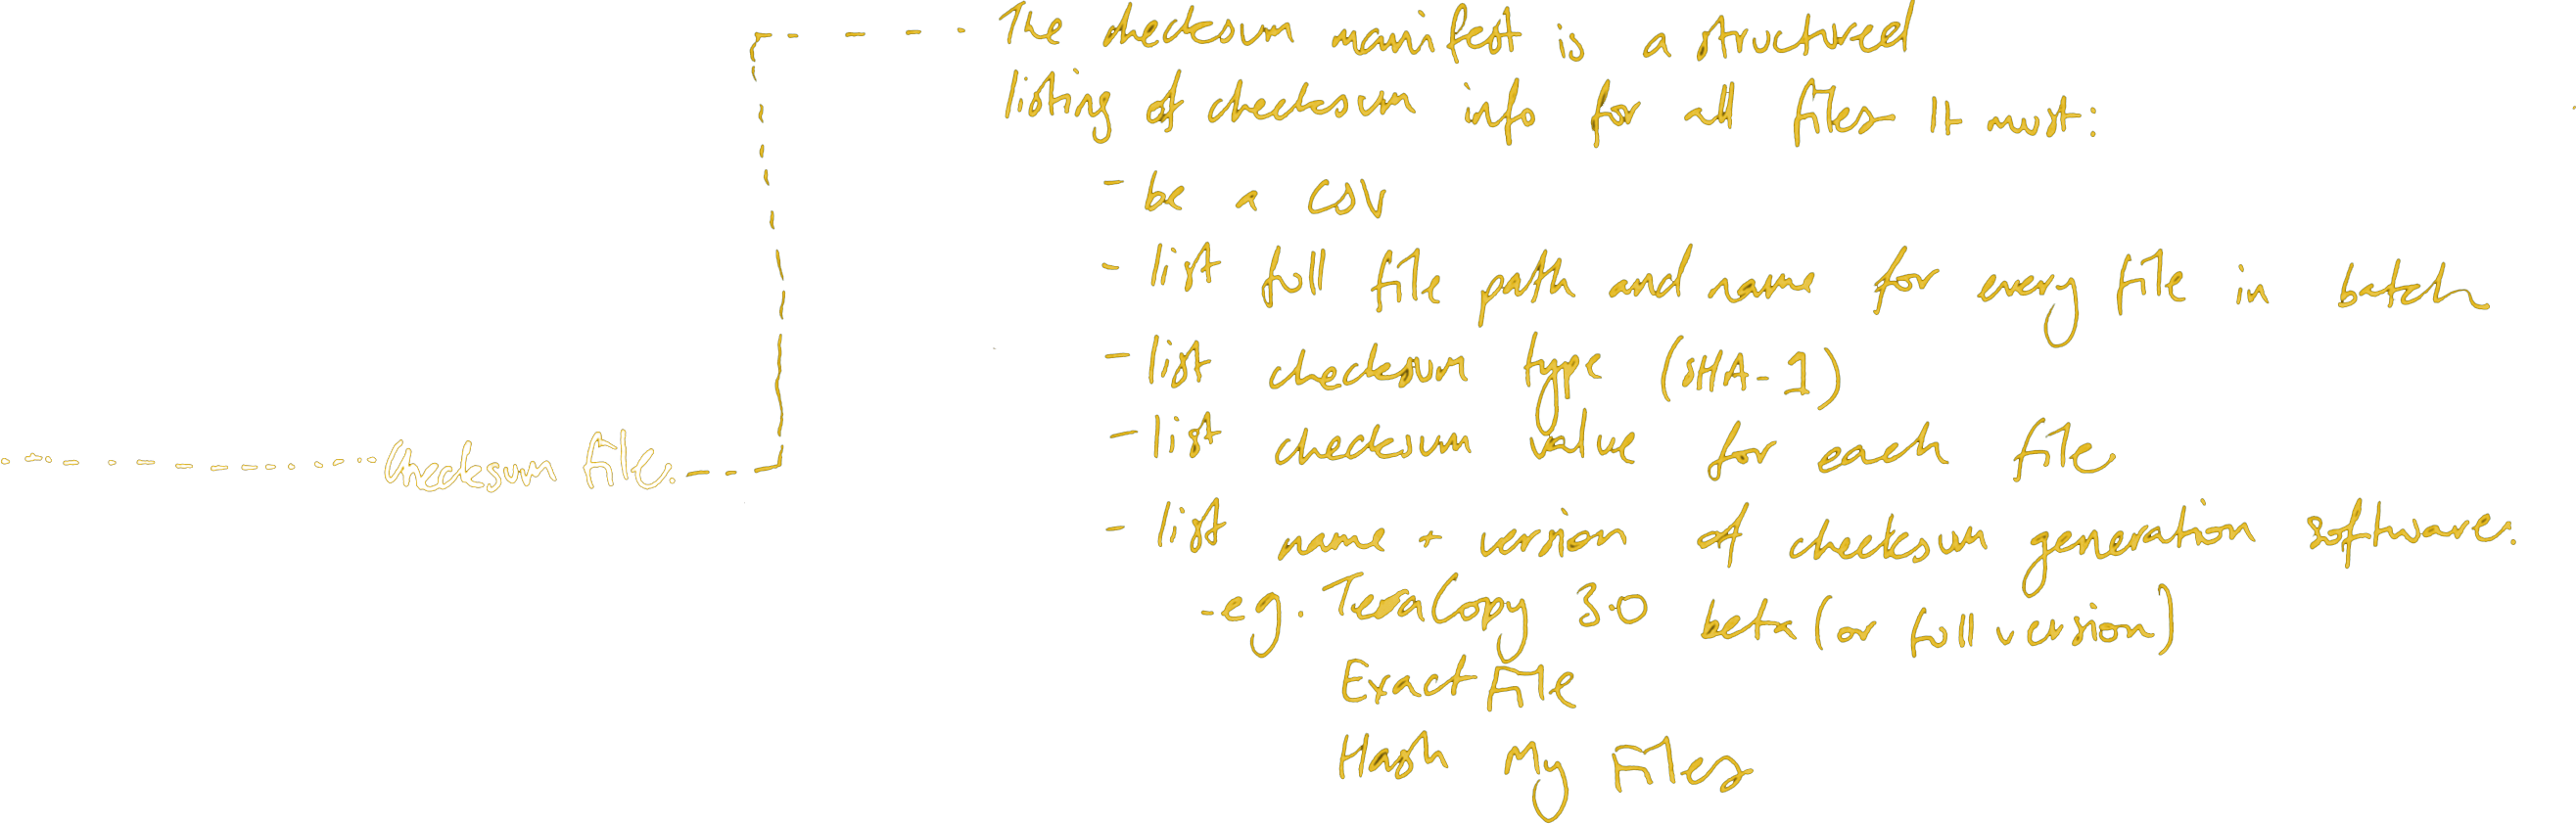 The checksum manifest is a structured
listing of checksum info for all files It must:
- be a CSV
- list full file path and name for every file in batch
- list checksum type (SHA-1)
- list checksum value for each file
Checksum File.
- list name + version of checksum generation software.
- eg. TeraCopy 3.0 beta (or full version)
Exact File
Hash My Files